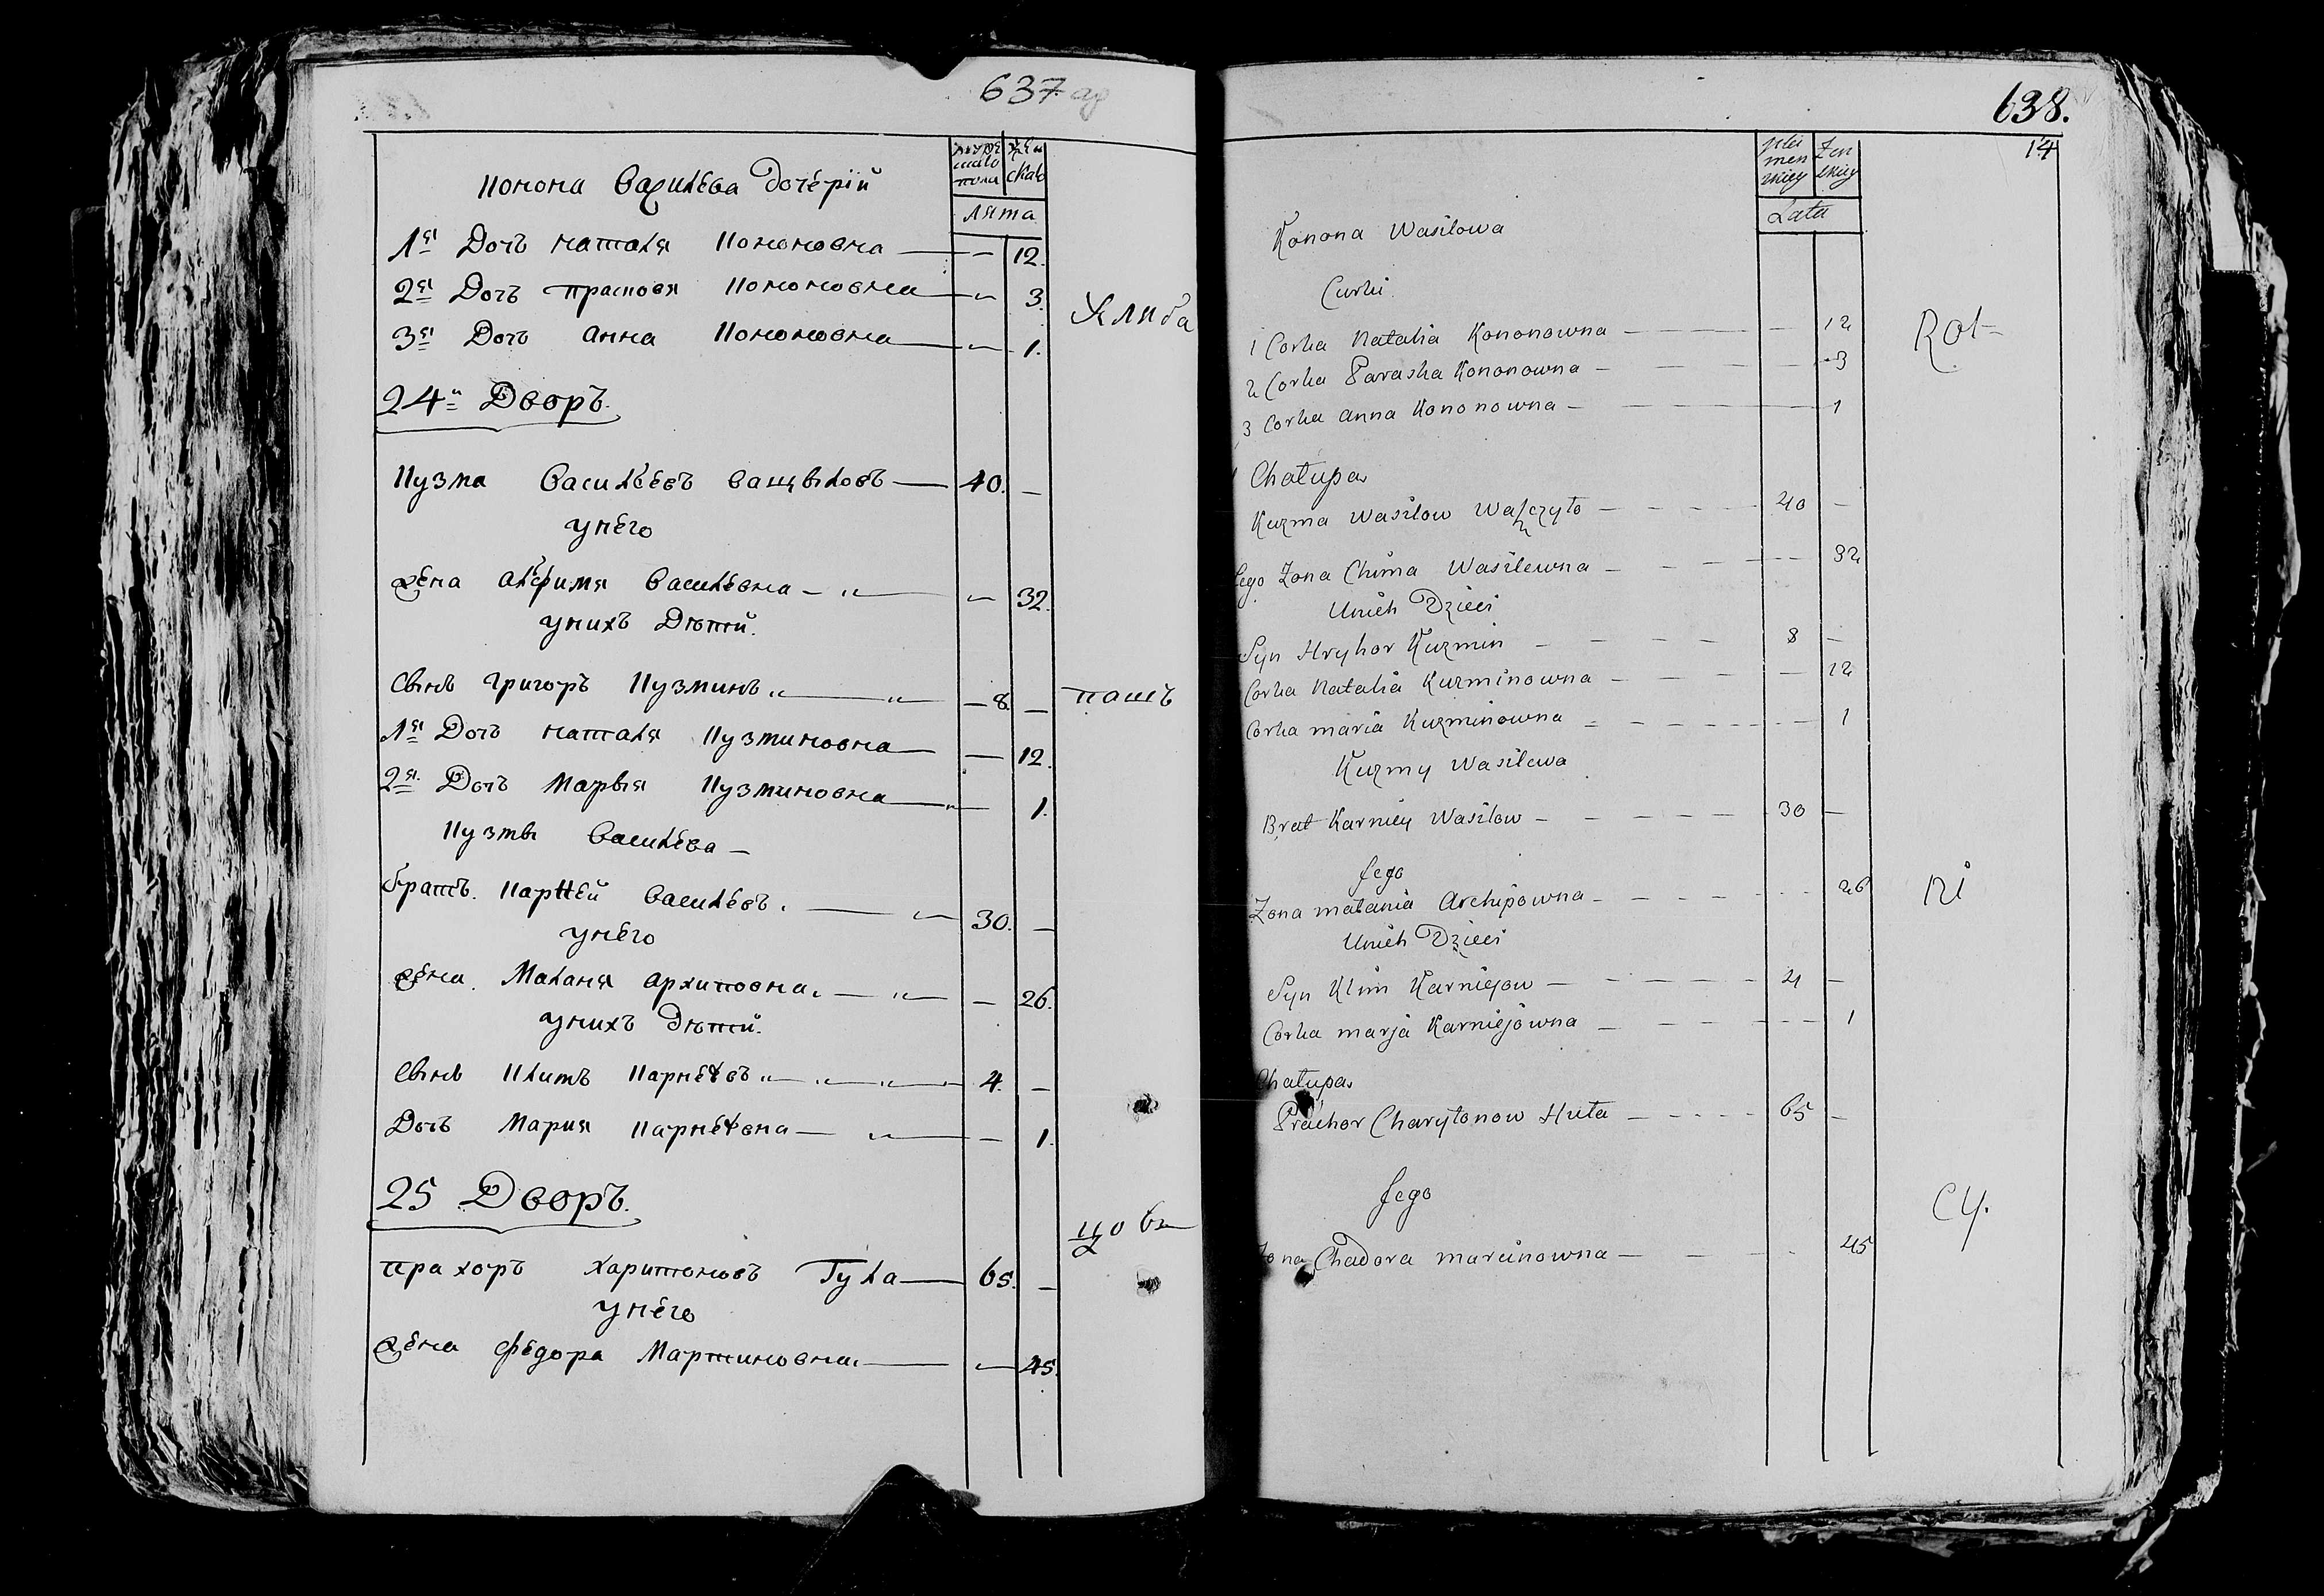 637
мужескаго пола женскаго
лята
Конона Василева Дочерiй
1я Дочъ наталя Кононовна — — 12.
2я Дочъ прасковя Кононовна — 3.
3я Дочъ анна Кононовна — 1.
24й Дворъ.
Кузма Василѐвъ ващыловъ — 40. —
унего
жена алфимя Василевна — 32.
унихъ Дѣтей.
Сынъ григоръ Кузминъ — 8. —
1я Дочъ наталя Кузминовна — 12.
2я Дочъ Марыя Кузминовна — 1.
Кузмы Василева —
братъ. Карней Василевъ. — 30. —
унего
жена. Маланя архиповна. — — 26.
унихъ дѣтей.
Сынъ Климъ Карнеевъ — 4. —
Дочъ Мария Карнеевна — — 1.
25 Дворъ.
прахоръ харитоновъ Гута — 65. —
унего
жена федора Мартиновна. — 45.
пашъ
638.
14
Mei men skiey Zen skiey
Lata
Konona Wasilowa
Curki.
1 Corka Natalia Kononowna — — 12
2 Corka Paraska Kononowna — — 3
3 Corka anna Kononowna — — 1
Chałupa
Kuzma Wasilow Waszczyło — 40 —
Jego Zona Chima Wasilewna — — 32
Unich Dzieci
Syn Hryhor Kuzmin — 8 —
Corka Natalia Kuzminowna — — 12
Corka maria Kuzminowna — — 1
Kuzmy Wasilewa
Brat Karniey Wasilow — 30 —
Jego
Zona małania Archipowna — — 26
Unich Dzieci
Syn Klim Karniejow — 4 —
Corka marja Karniejowna — — 1
Chałupa
Prachor Charytonow Huta — 65 —
Jego
Zona Chadora marcinowna — 45
Rot
ni
cy.